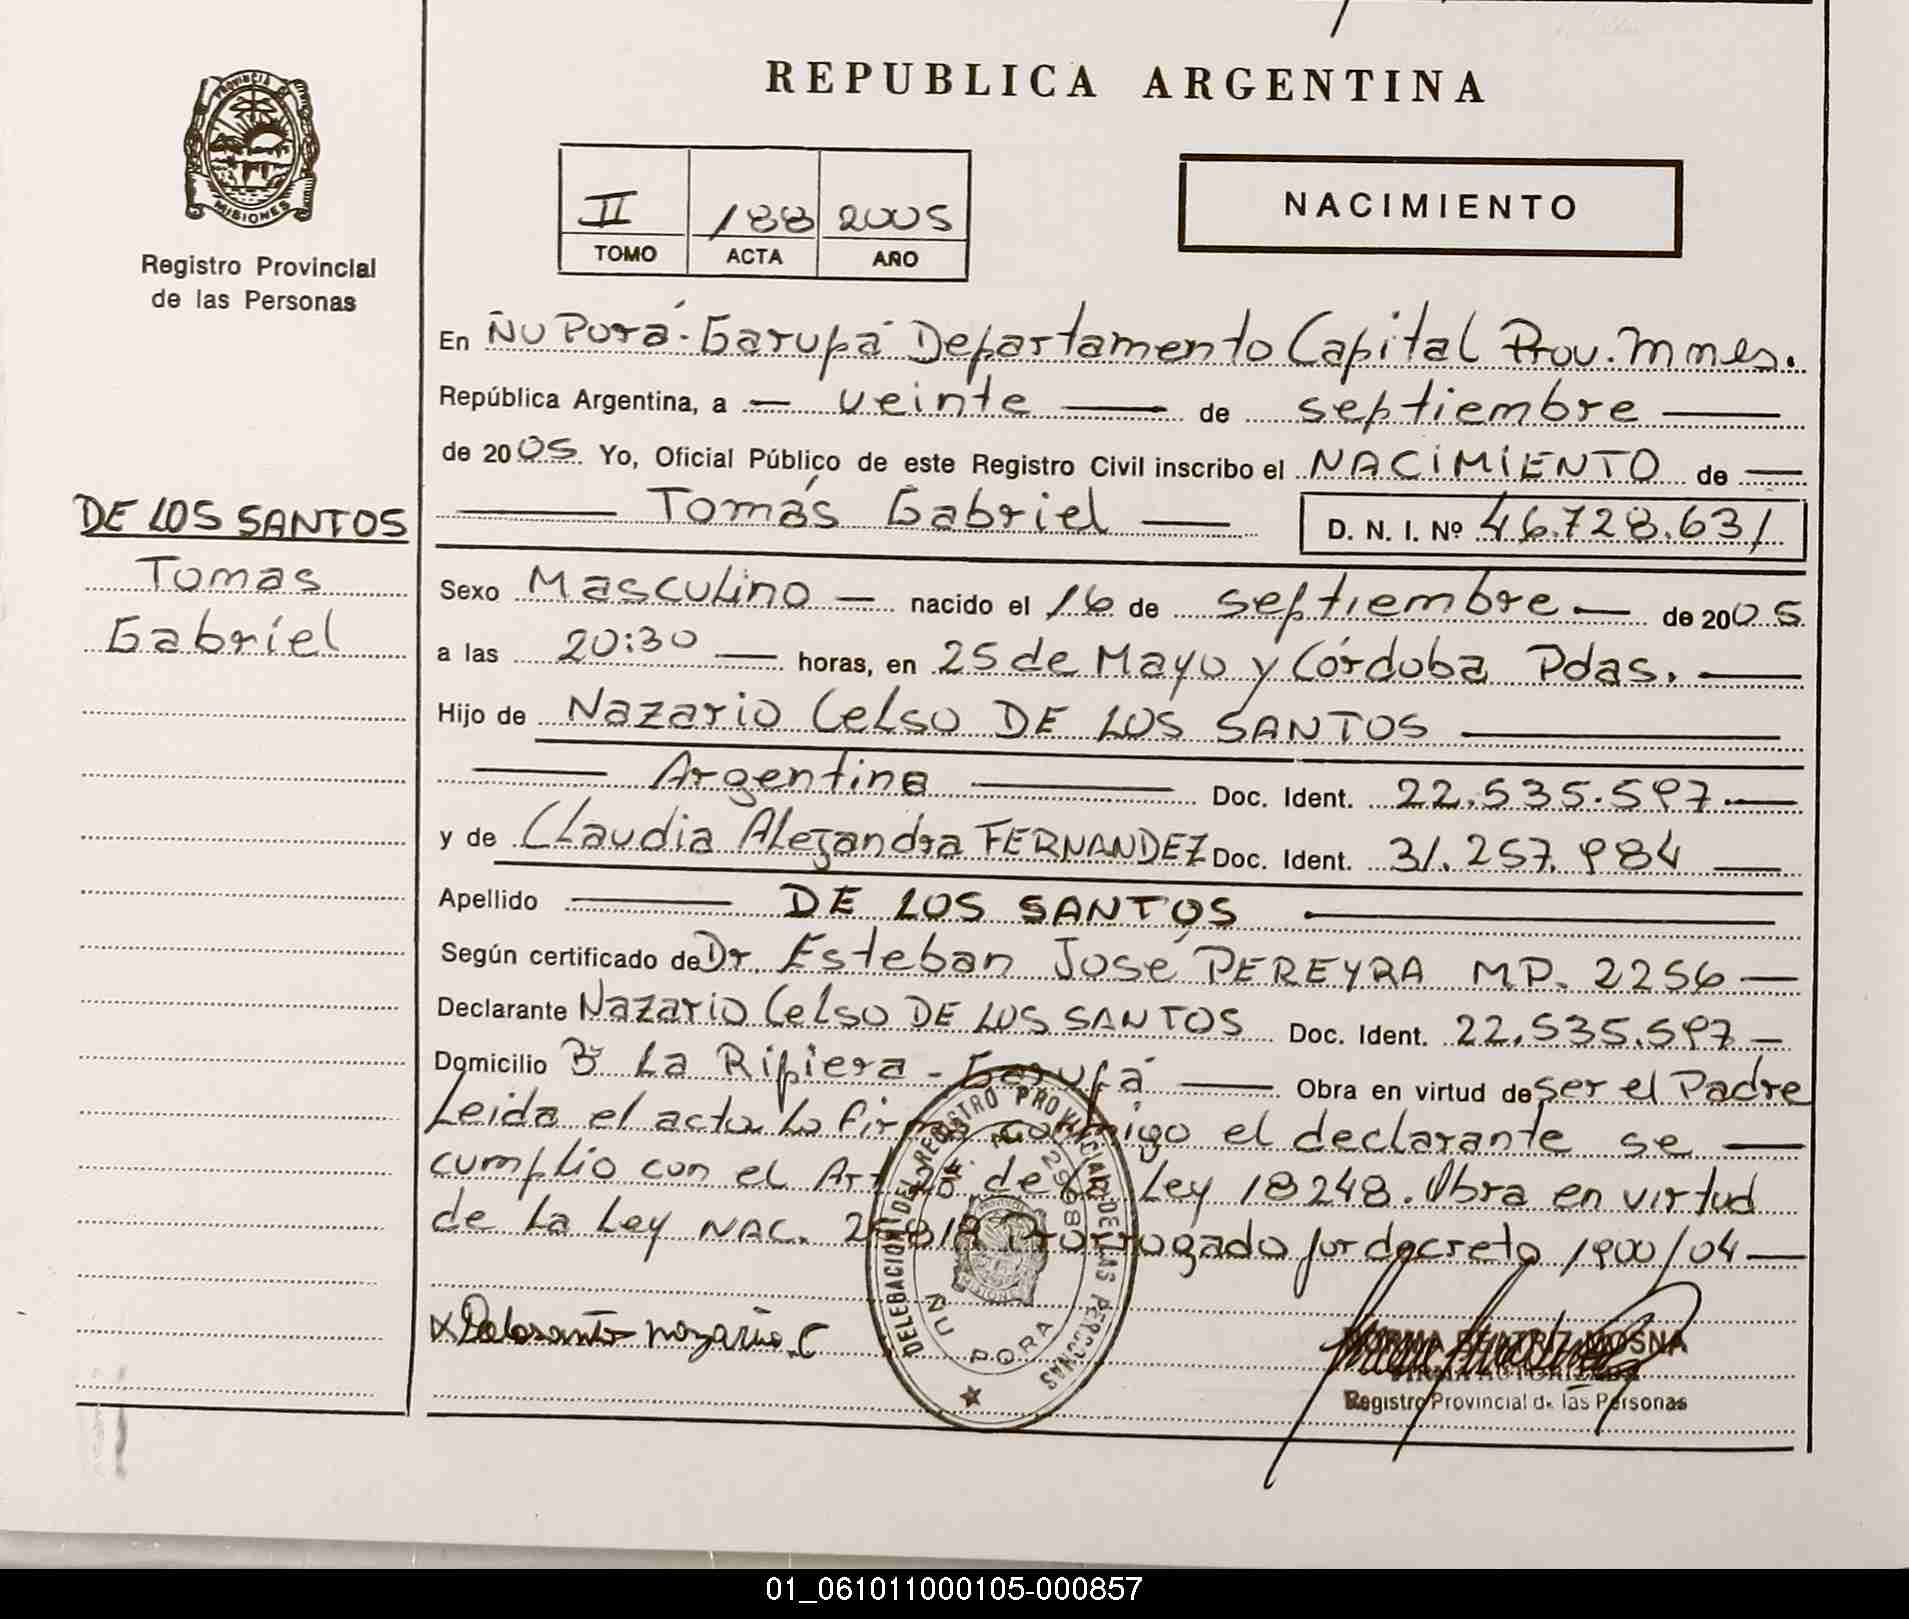 REPUBLICA ARGENTINA
PROVINCIA DE
MISIONES
Registro Provincial
de las Personas
II 188 2005
TOMO ACTA AÑO
NACIMIENTO
En Ñu Porá - Garupá Departamento Capital Prov. Mnes.
República Argentina, a — veinte — de septiembre —
de 2005 Yo, Oficial Público de este Registro Civil inscribo el NACIMIENTO de —
— Tomás Gabriel — D. N. I. Nº 46.728.631
DE LOS SANTOS
Tomas
Gabriel
Sexo Masculino — nacido el 16 de septiembre — de 2005
a las 20:30 — horas, en 25 de Mayo y Córdoba Pdas. —
Hijo de Nazario Celso DE LOS SANTOS —
— Argentina — Doc. Ident. 22.535.597 —
y de Claudia Alejandra FERNANDEZ Doc. Ident. 31.257.984 —
Apellido — DE LOS SANTOS —
Según certificado de Dr. Esteban José PEREYRA M.P. 2256 —
Declarante Nazario Celso DE LOS SANTOS Doc. Ident. 22.535.597 —
Domicilio Bº La Ripiera - Garupá — Obra en virtud de ser el Padre
Leida el acta la firma conmigo el declarante se —
cumplio con el Art de la Ley 18248. Obra en virtud
de la Ley NAC. Prorrogado por decreto 1900/04 —
DELEGACION DEL REGISTRO PROVINCIAL DE LAS PERSONAS
2968
ÑU PORA
x Delosantos Nazario C
NORMA BEATRIZ MOSNA
FIRMA AUTORIZADA
Registro Provincial de las Personas
01_061011000105-000857